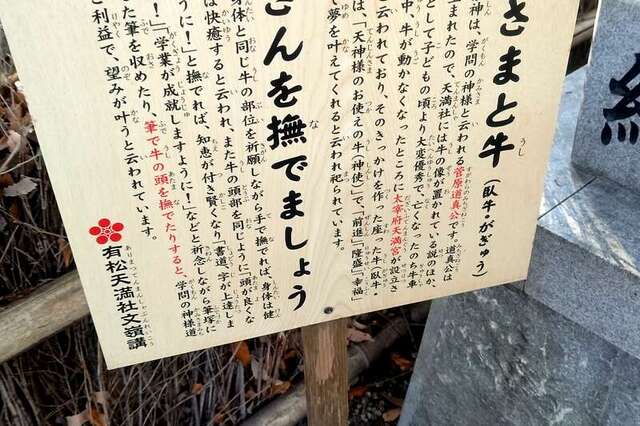 さまと牛(臥牛・がぎゅう)
神は、学問の神様と云われる菅原道真公です。道真公は
まれたので、天満社には牛の像が置かれている説のほか、
として子どもの頃より大変優秀で、亡くなったのち牛車
中、牛が動かなくなったところに太宰府天満宮が設立さ
と云われており、そのきっかけを作った座った牛・臥牛・
は、「天神様のお使えの牛(神使)」で、「前進」「隆盛」「幸福」
て夢を叶えてくれると云われ祀られています。
さんを撫でましょう
身体と同じ牛の部位を祈願しながら手で撫でれば、身体は健
は快癒すると云われ、また牛の頭部を同じように「頭が良くな
うに!」と撫でれば、知恵が付き賢くなり「書道・字が上達しま
うに!」「学業が成就しますように!」などと祈念しながら筆塚に
た筆を収めたり、筆で牛の頭を撫でたりすると、学問の神様道
ご利益で、望みが叶うと云われています。
有松天満社文嶺講